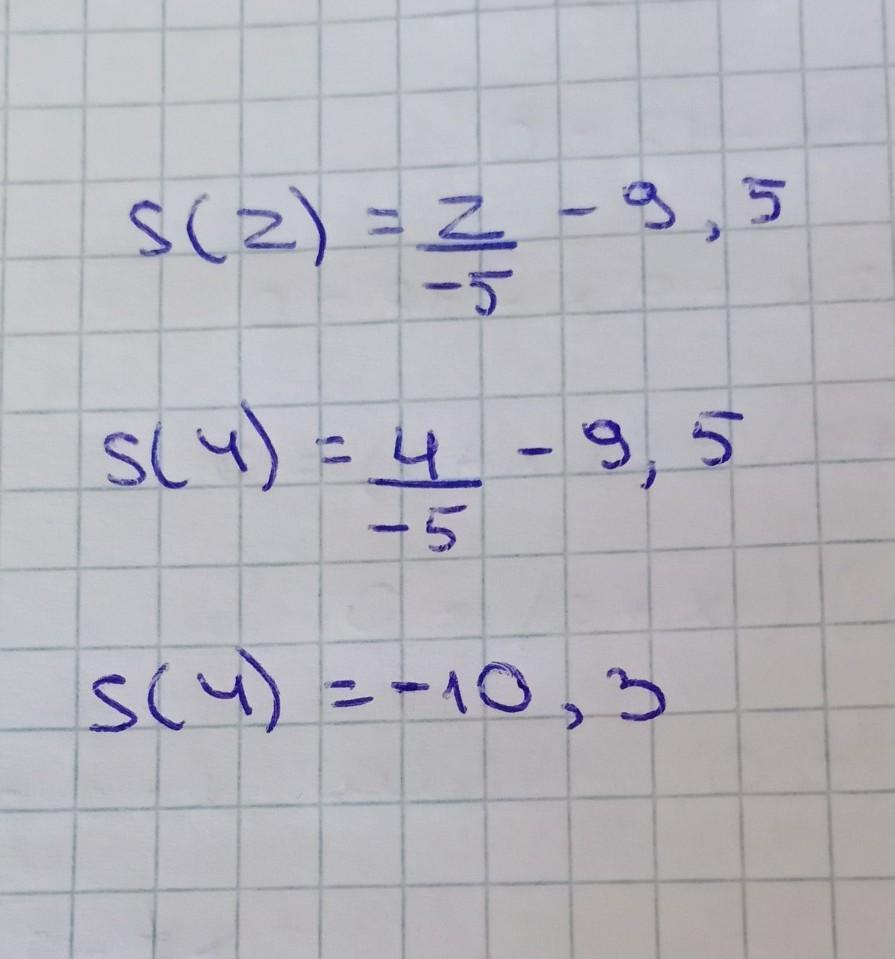 s(z) = z/-5 - 9,5
s(4) = 4/-5 - 9,5
s(4) = -10,3